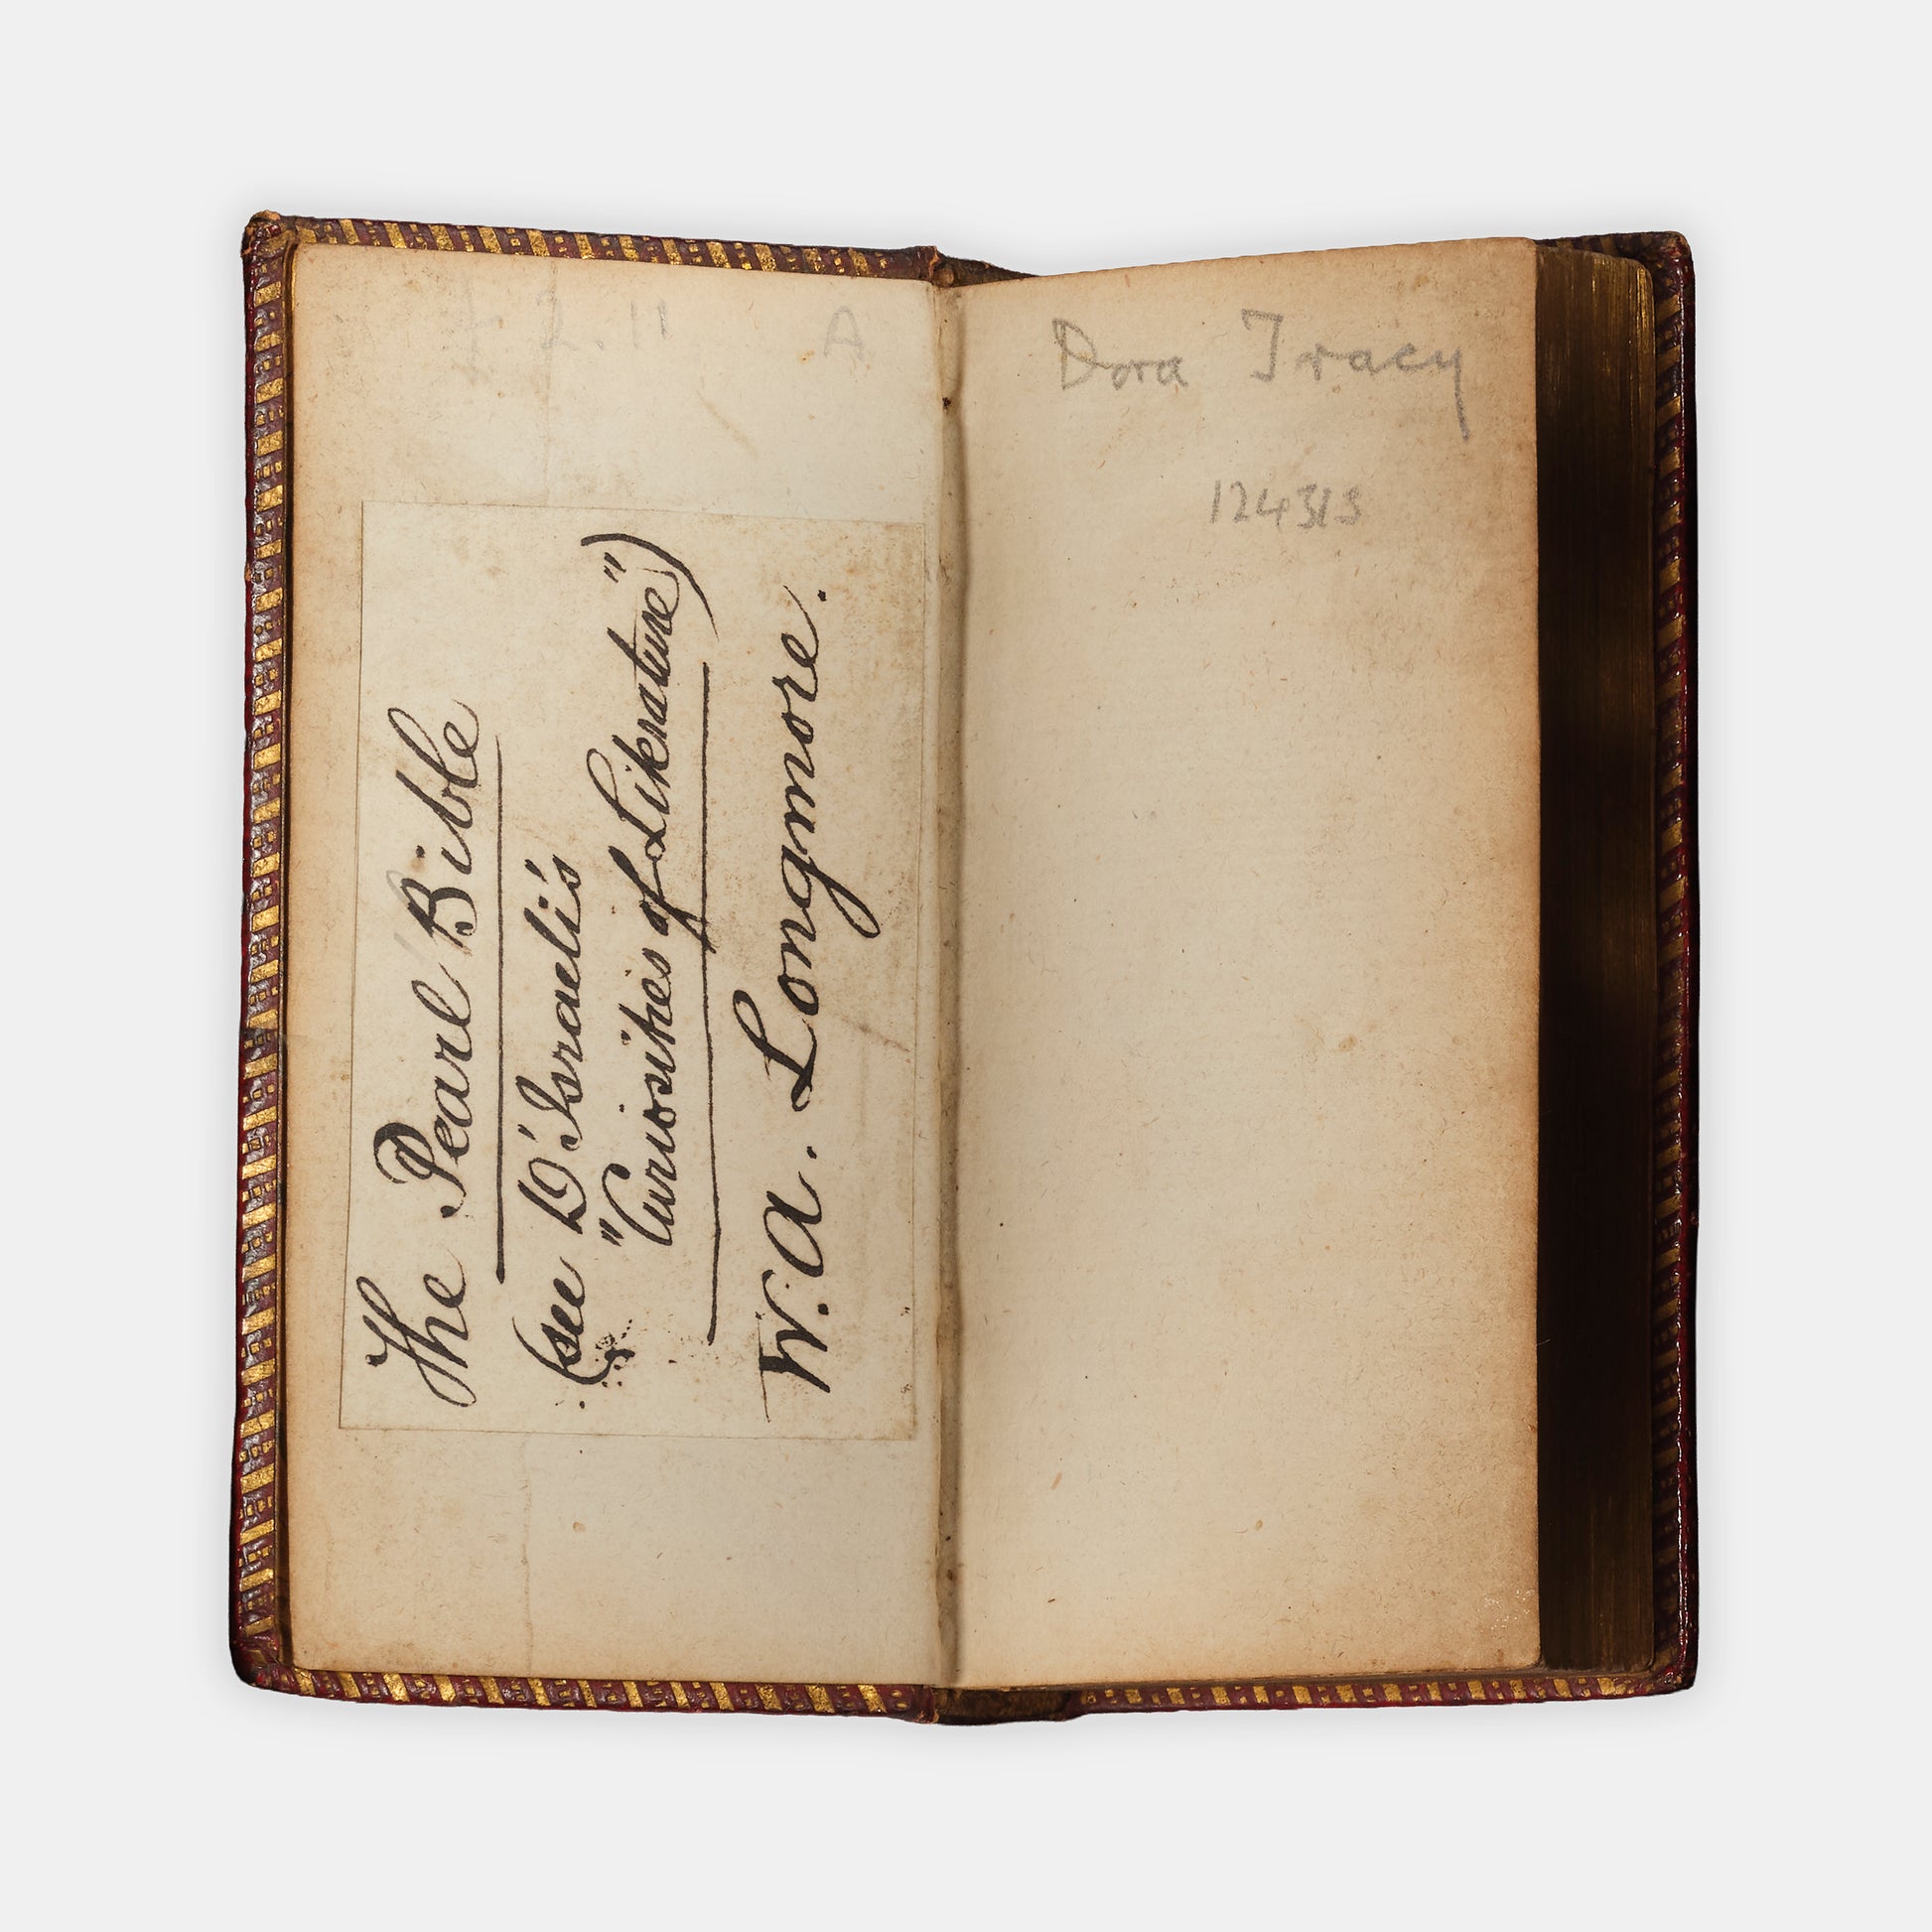 £ 2.11 A
The Pearl Bible
(see D'Israeli's
"Curiosities of Literature")
W. A. Longmore.
Dora Tracy
124313